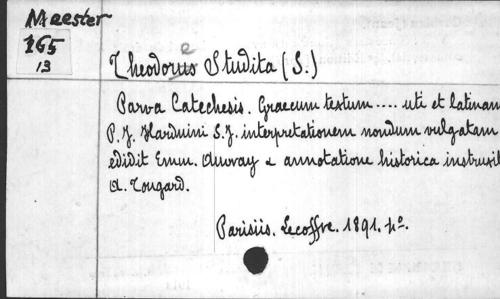 Meester
165
13
Theodorus Studita (S.)
Parva Catechesis. Graecum textum .... uti et latinam
P. J. Harduini S.J. interpretationem nondum vulgatam
edidit Emm. Auvray & annotatione historica instruxit
A. Tougard.
Parisiis. Lecoffre. 1891. 4º.